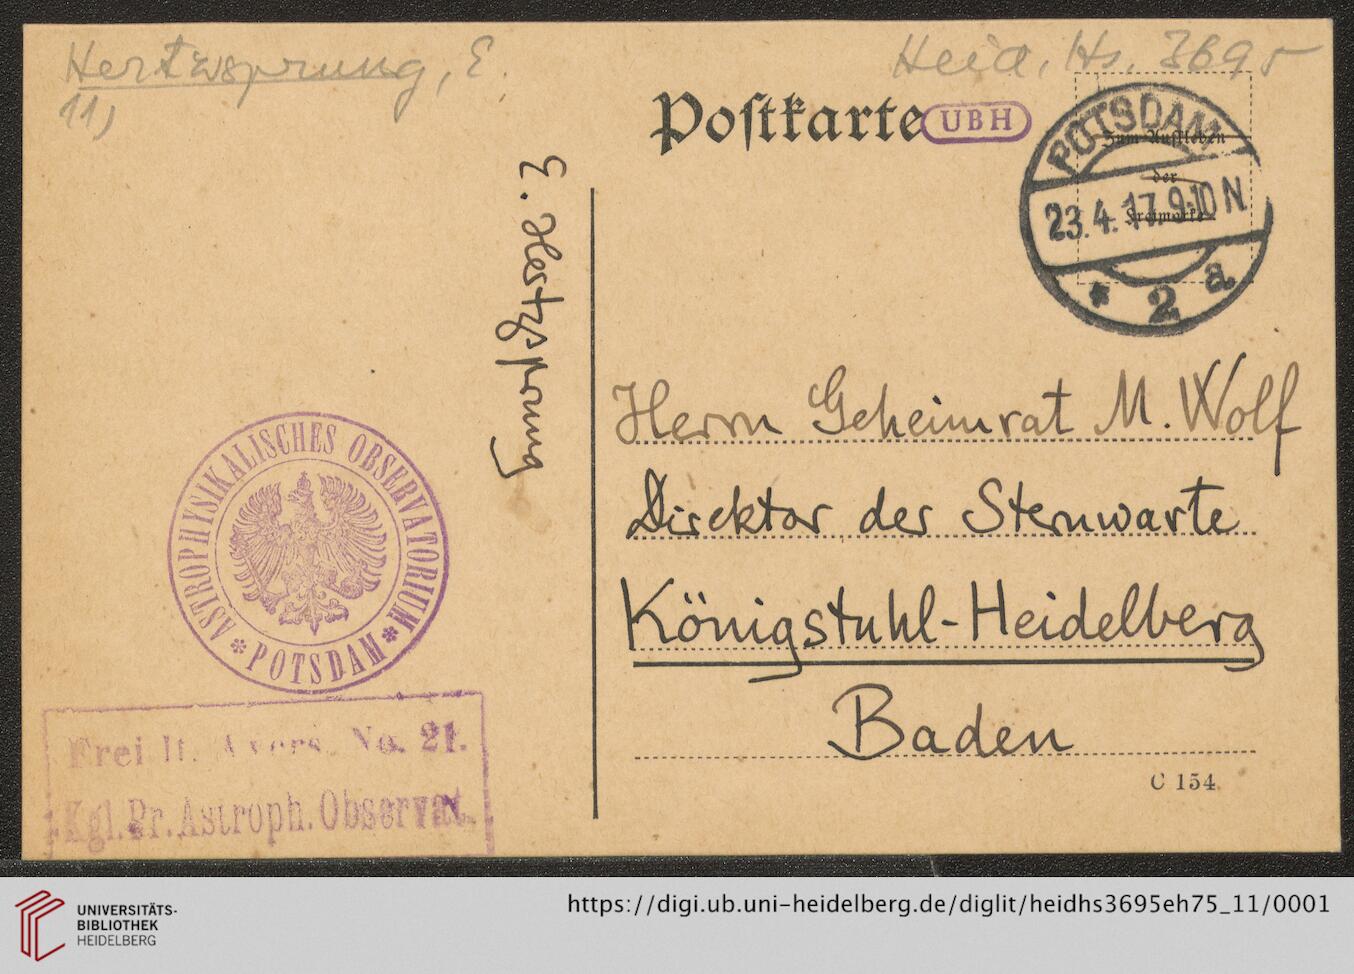 Hertzsprung, E.
11)
Heid. Hs. 3695
Postkarte
UBH
POTSDAM
23.4.17.9-10N
* 2 a
Zum Aufkleben
der
Freimarke
E. Hertzsprung
Herrn Geheimrat M. Wolf
Direktor der Sternwarte
Königstuhl-Heidelberg
Baden
C 154
ASTROPHYSIKALISCHES OBSERVATORIUM
* POTSDAM *
Frei lt. Avers. No. 21.
Kgl. Pr. Astroph. Observat.
UNIVERSITÄTS-
BIBLIOTHEK
HEIDELBERG
https://digi.ub.uni-heidelberg.de/diglit/heidhs3695eh75_11/0001